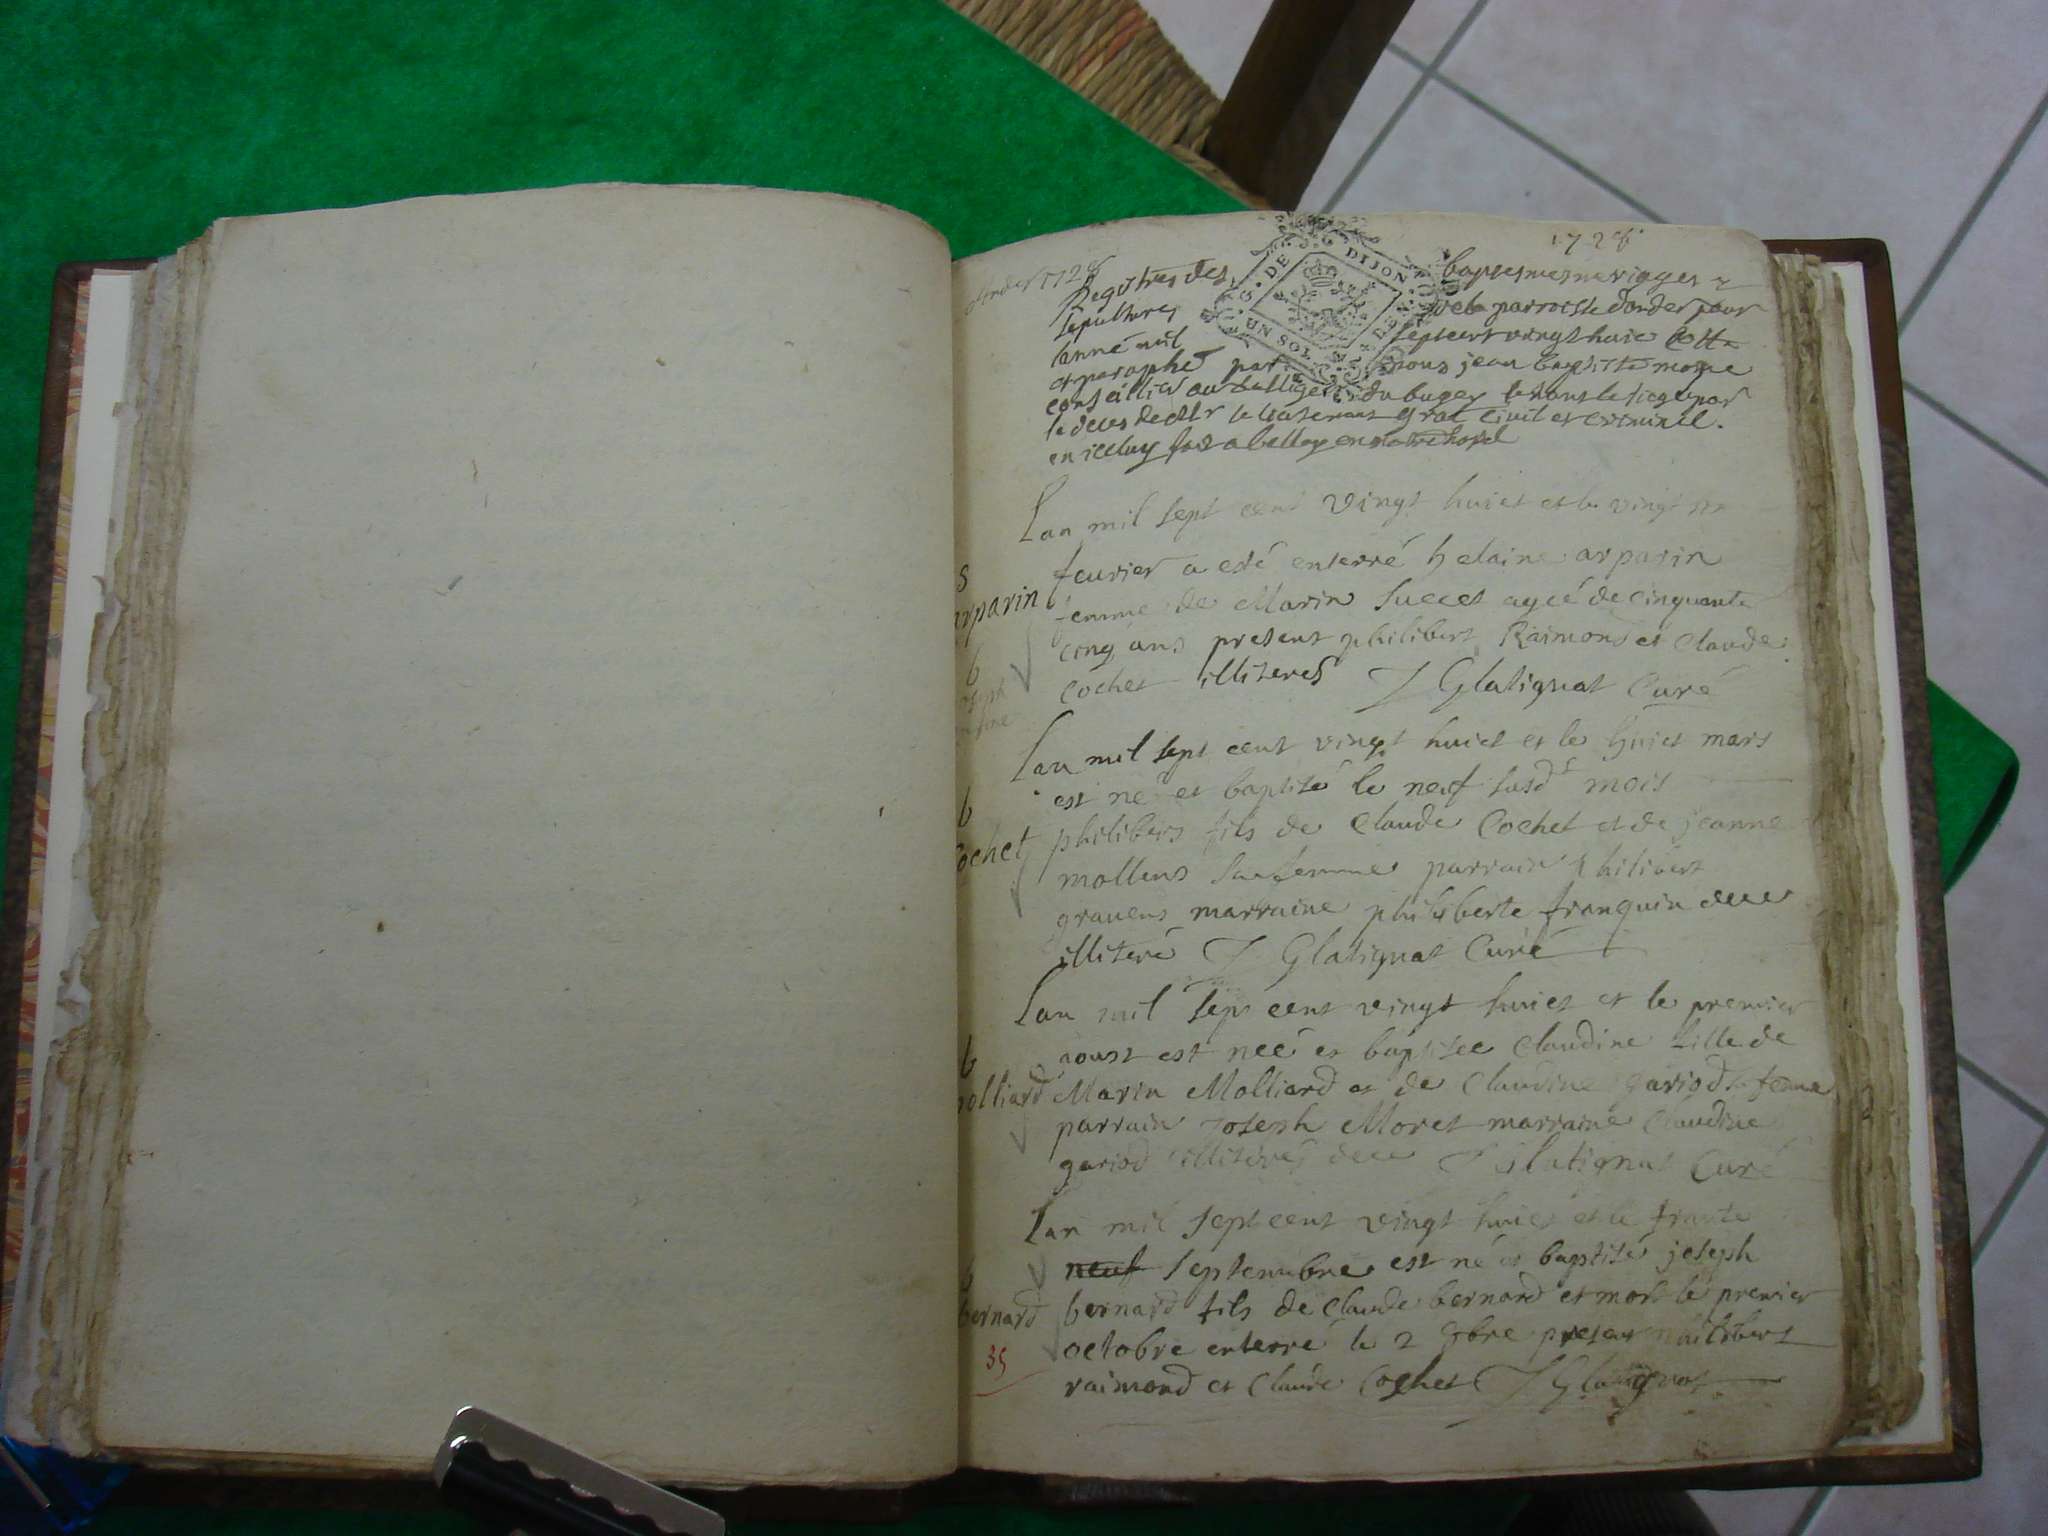 1728
Registres des baptesmes mariages &
sepultures de la parroisse donder pour
lanné mil sept cent vingt huit Cotté
et paraphé par nous jean baptiste
G. DE DIJON
UN SOL
conseillier au bailliage du bugey tenant le siege par
le deces de Mr le lieutenant gral Civil et Criminel.
en iceluy fait a belley en notre hotel
Lan mil sept cent vingt huict et le vingt
s
arparin
feurier a esté enterré helaine arparin
femme de Marin Succet ageé de cinquante
cinq ans present philibert Raimond et Claude
Cochet illiterés J Glatignat Curé
b
Lan mil sept cent vingt huict et le huict mars
est né et baptisé le neuf susdt mois
b
Cochet
philibert fils de Claude Cochet et de jeanne
mollens sa femme parrain philibert
grauens marraine philiberte franquin
illiteré J Glatignat Curé
Lan mil sept cent vingt huict et le premier
b
molliard
aoust est neé et baptisee Claudine fille de
Marin Molliard et de Claudine gariod sa femme
parrain joseph Moret marraine Claudine
gariod illiterés J Glatignat Curé
Lan mil sept cent vingt huict et le trante
b
bernard
neuf Septembre est né et baptisé joseph
bernard fils de Claude bernard et mort le premier
octobre enterré le 2 8bre present philibert
35
raimond et Claude Cochet J Glatignat